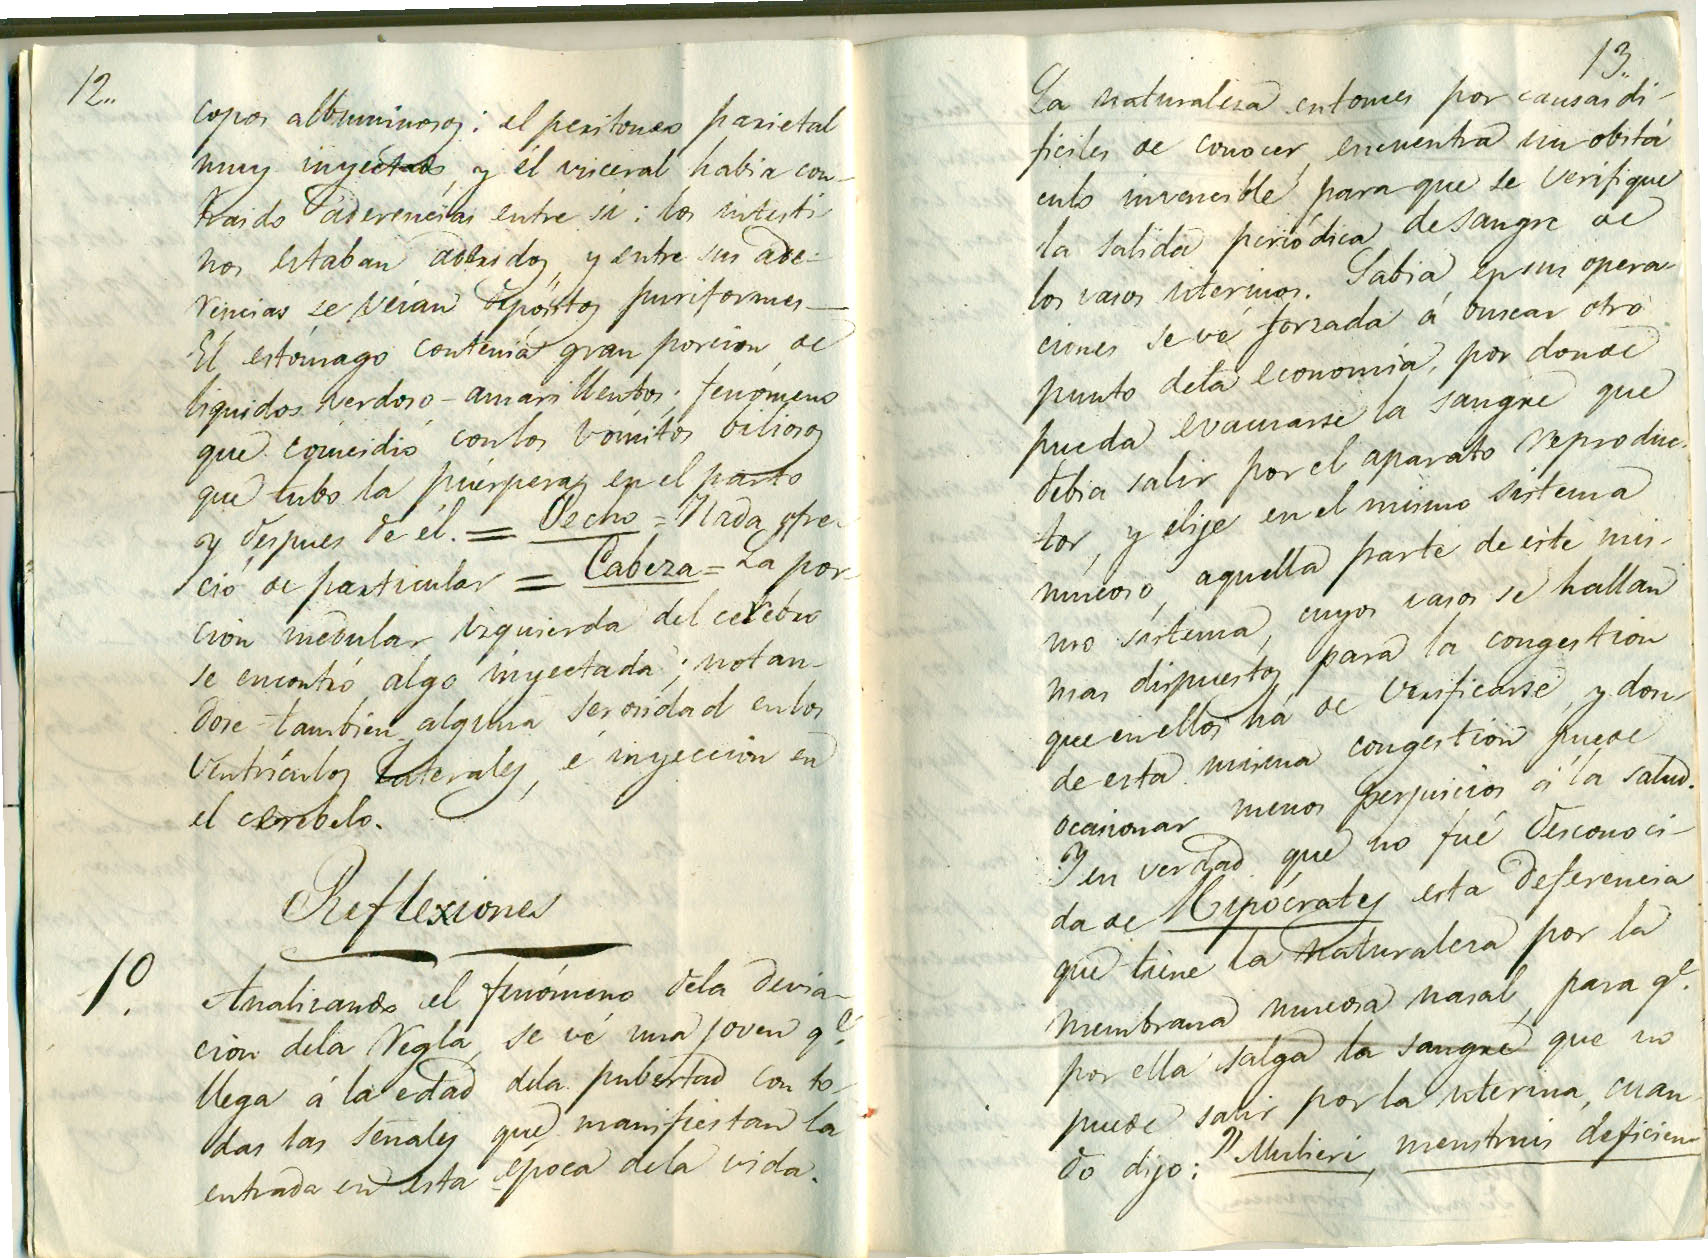 12..
copos albuminosos: el peritoneo parietal
muy inyectado, y él visceral habia con-
traido aderencias entre sí: los intesti-
nos estaban aderidos, y entre sus ade-
rencias se veian depósitos puriformes—
El estómago contenia gran porcion de
liquidos verdoso-amarillentos; fenómeno
que coincidió con los vómitos biliosos
que tubo la puérpera, en el parto
y despues de él. = Pecho = Nada ofre-
ció de particular = Cabeza = La por-
cion medular izquierda del celebro
se encontró algo inyectada; notan-
dose tambien alguna serosidad en los
ventrículos laterales, é inyeccion en
el cerebelo.
Reflexiones
1º.
Analizando el fenómeno dela desvia-
cion dela Regla, se vé una joven qe.
llega á la edad dela pubertad con to-
das las señales que manifiestan la
entrada en esta época dela vida.
13..
La naturaleza entonces por causas di-
ficiles de conocer, encuentra un obstá
culo invencible para que se verifique
la salida periódica de sangre de
los vasos uterinos. Sabia en sus opera-
ciones se vé forzada á buscar otro
punto dela economia, por donde
pueda evacuarse la sangre que
debia salir por el aparato reproduc-
tor, y elije en el mismo sistema
mucoso, aquella parte de este mis-
mo sistema, cuyos vasos se hallan
mas dispuestos para la congestion
que en ellos há de verificarse, y don-
de esta misma congestion puede
ocasionar menos perjuicios á la salud.
Y en verdad que no fué desconoci-
da de Hipócrates esta deferencia
que tiene la naturaleza por la
membrana mucosa nasal, para qe.
por ella salga la sangre que no
puede salir por la uterina, cuan-
do dijo: "Mulieri, menstruis deficien-